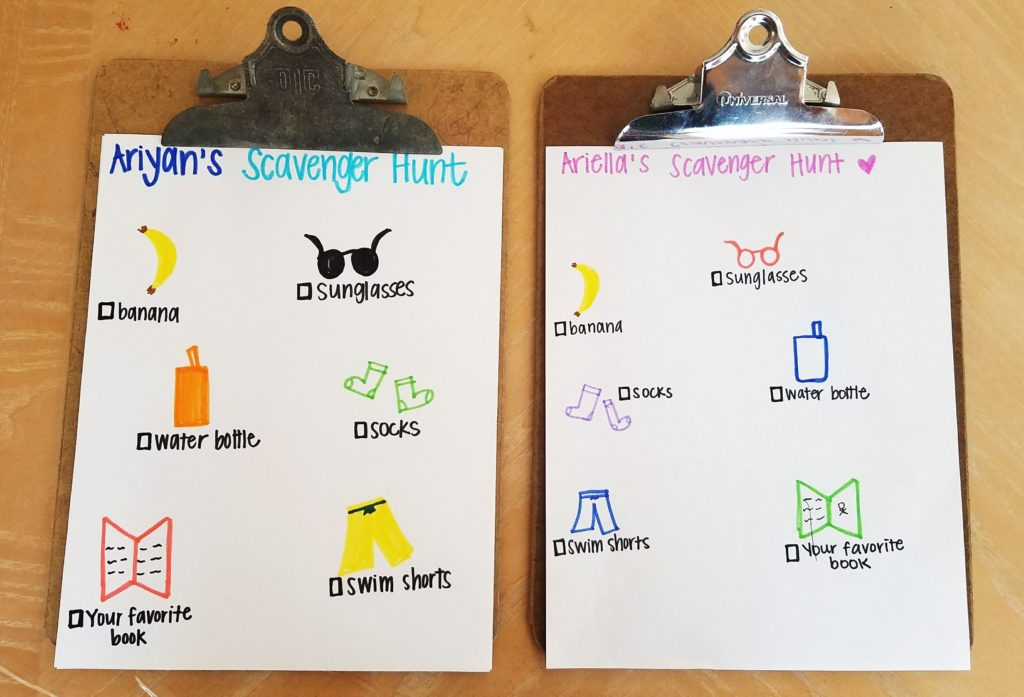 DIC
Ariyan's Scavenger Hunt
Sunglasses
banana
Water bottle
SOCKS
Swim shorts
Your favorite
book
UNIVERSAL
Ariella's Scavenger Hunt
Sunglasses
banana
SOCKS
Water bottle
Swim shorts
Your favorite
book